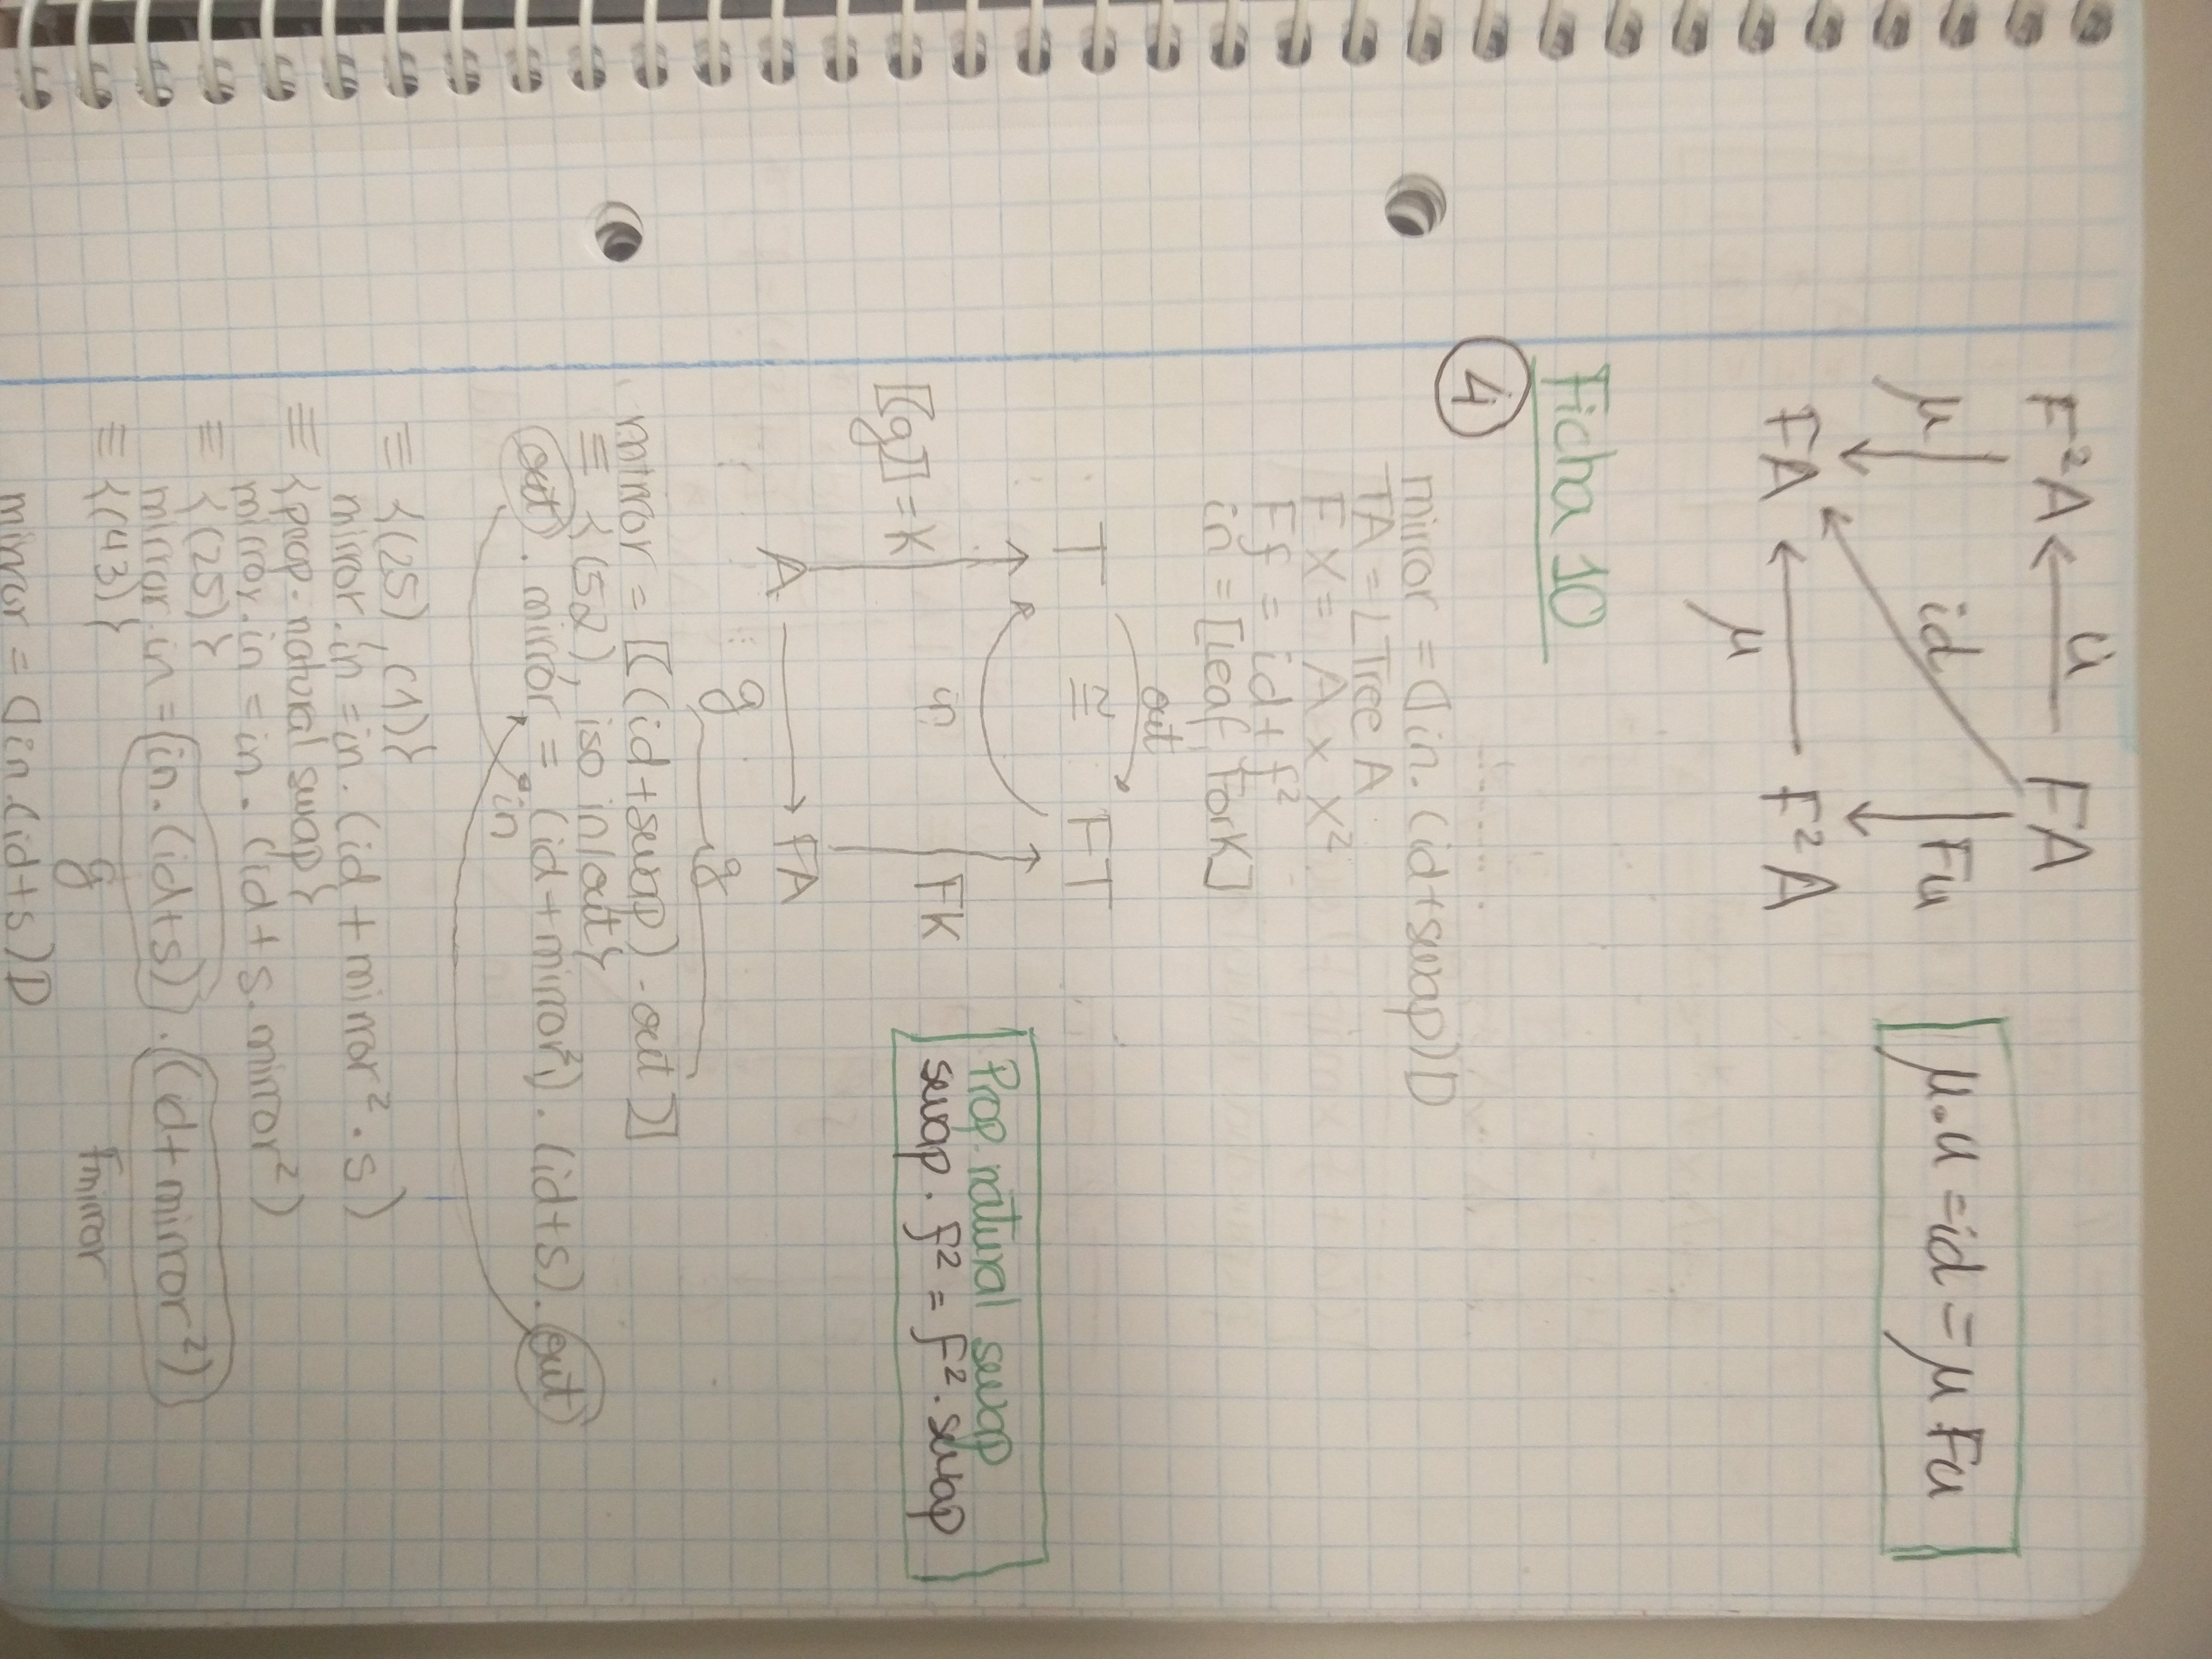 F²A ← u FA
μ id Fu
μ.u = id = μ Fu
FA ← F²A
μ
Ficha 10
4
mirror = ⦇in. (id+swap)⦈
TA = LTree A
F X = A x X²
F f = id + f²
in = [Leaf, Fork]
out
T ≅ FT
in
⟦g⟧ = K
FK
Prop. natural swap
swap . f² = f² . swap
A → FA
g
g
mirror = ⟦(id+swap) . out⟧
≡ {(52), iso in/out}
out . mirror = (id+mirror²) . (id+s) . out
in
≡ {(25), (1)}
mirror.in = in. (id + mirror² . s)
≡ {prop. natural swap}
mirror.in = in . (id + s. mirror²)
≡ {(25)}
mirror.in = in.(id+s) . (id+mirror²)
≡ {(43)}
g Fmirror
mirror = ⦇in.(id+s)⦈